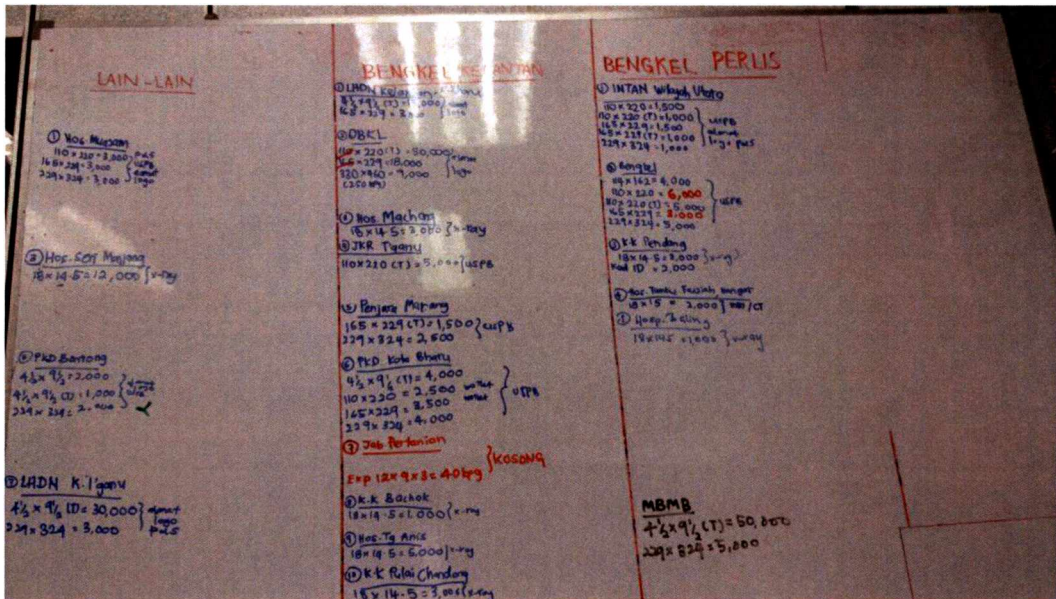 LAIN-LAIN
① Hos Muazam
110 x 220 = 3,000
165 x 229 = 3,000
229 x 324 = 3,000
PLS
USPB
alamat
logo
② Hos. Seri Manjung
18 x 14.5 = 12,000 } x-ray
PKD Bentong
4½ x 9½ = 2,000
4½ x 9½ (T) = 1,000
229 x 324 = 2,000
LHDN K. T'ganu
4½ x 9½ (T) = 30,000
229 x 324 = 3,000
alamat
logo
PLS
BENGKEL KELANTAN
① LHDN Kelantan
165 x 229 = 3,000
logo
② DBKL
110 x 220 (T) = 50,000
165 x 229 = 18,000
320 x 460 = 9,000
alamat
logo
Hos Machang
18 x 14.5 = 2,000 } x-ray
JKR Tganu
110 x 220 (T) = 5,000 } USPB
⑤ Penjara Marang
165 x 229 (T) = 1,500
229 x 324 = 2,500
USPB
⑥ PKD Kota Bharu
4½ x 9½ (T) = 4,000
110 x 220 = 2,500
165 x 229 = 3,500
229 x 324 = 4,000
USPB
⑦ Jab Pertanian
Exp 12 x 9 x 3 = 40 kpg
} KOSONG
⑧ K.K Bachok
18 x 14.5 = 1,000 } x-ray
⑨ Hos. Tg Anis
18 x 14.5 = 5,000 } x-ray
⑩ K.K Pulai Chondong
18 x 14.5 = 3,000 } x-ray
BENGKEL PERLIS
① INTAN Wilayah Utara
110 x 220 = 1,500
110 x 220 (T) = 1,000
165 x 229 = 1,500
165 x 229 (T) = 1,000
229 x 324 = 1,000
USPB
alamat
logo PLS
Bengkel
114 x 162 = 4,000
110 x 220 = 6,000
110 x 220 (T) = 5,000
165 x 229 = 3,000
229 x 324 = 5,000
USPB
K.K Pendang
18 x 14.5 = 2,000 } x-ray
Kad ID = 2,000
Hos. Tuanku Fauziah Kangar
18 x 15 = 2,000 } /CT
Hosp. Baling
18 x 14.5 = 1,000 } x-ray
MBMB
4½ x 9½ (T) = 50,000
229 x 324 = 5,000